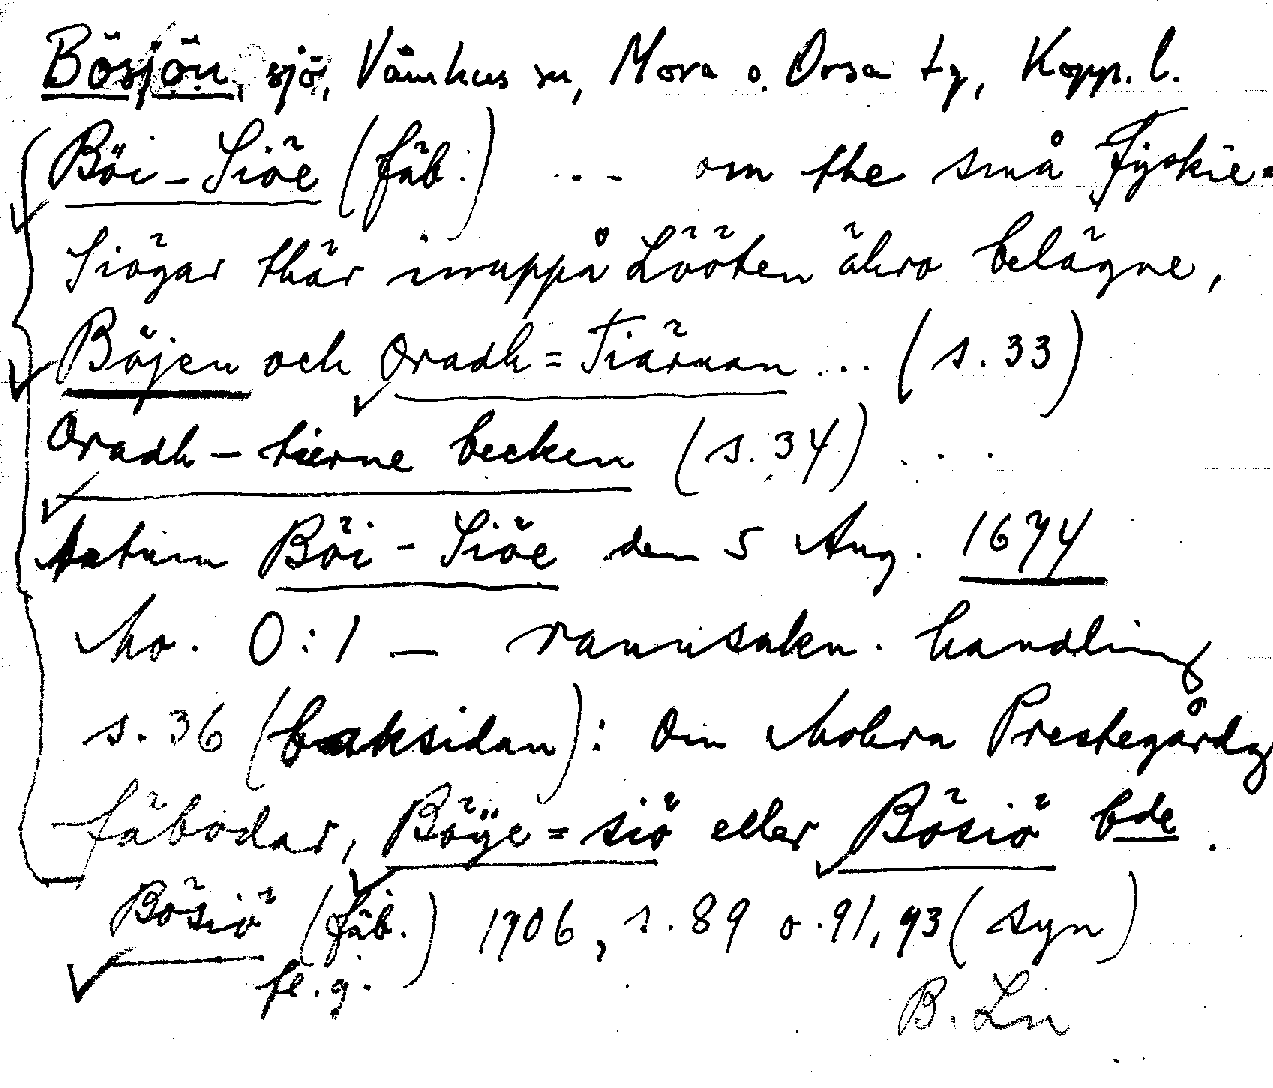 Bösjön, sjö, Våmhus sn, Mora o. Orsa tg, Kopp. l.
Böi-Siöe (fäb.) ... om the små Fyskie=
Siögar thär inuppå Lööten ähro belägne,
Böjen och Oradh=Tiärnan ... (s. 33)
Oradh-tierne becken (s. 34) ...
Actum Böi-Siöe den 5 Aug. 1674
Mo. O:1 — rannsakn. handling
s. 36 (baksidan): Om Mohra Prestegårdz
fäbodar, Böÿe=siö eller Bösiö bde.
Bösiö (fäb.) 1706, s. 89 o. 91, 93 (syn)
fl. g.
B. Ln